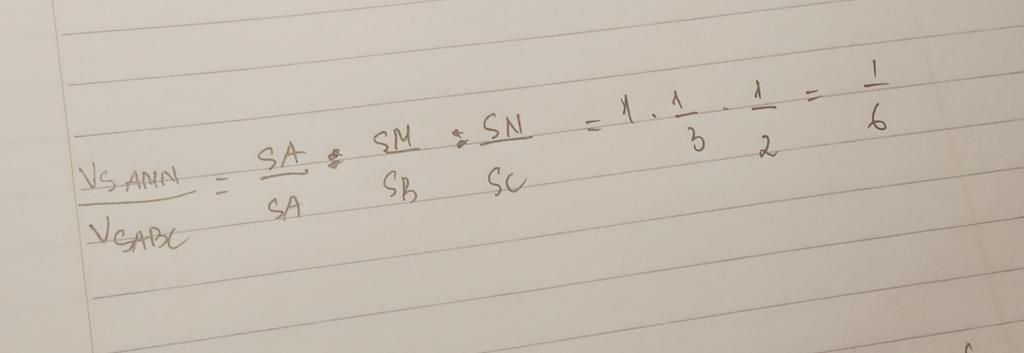 V_{SAMN} / V_{SABC} = SA / SA : SM / SB : SN / SC = 1 . 1 / 3 . 1 / 2 = 1 / 6